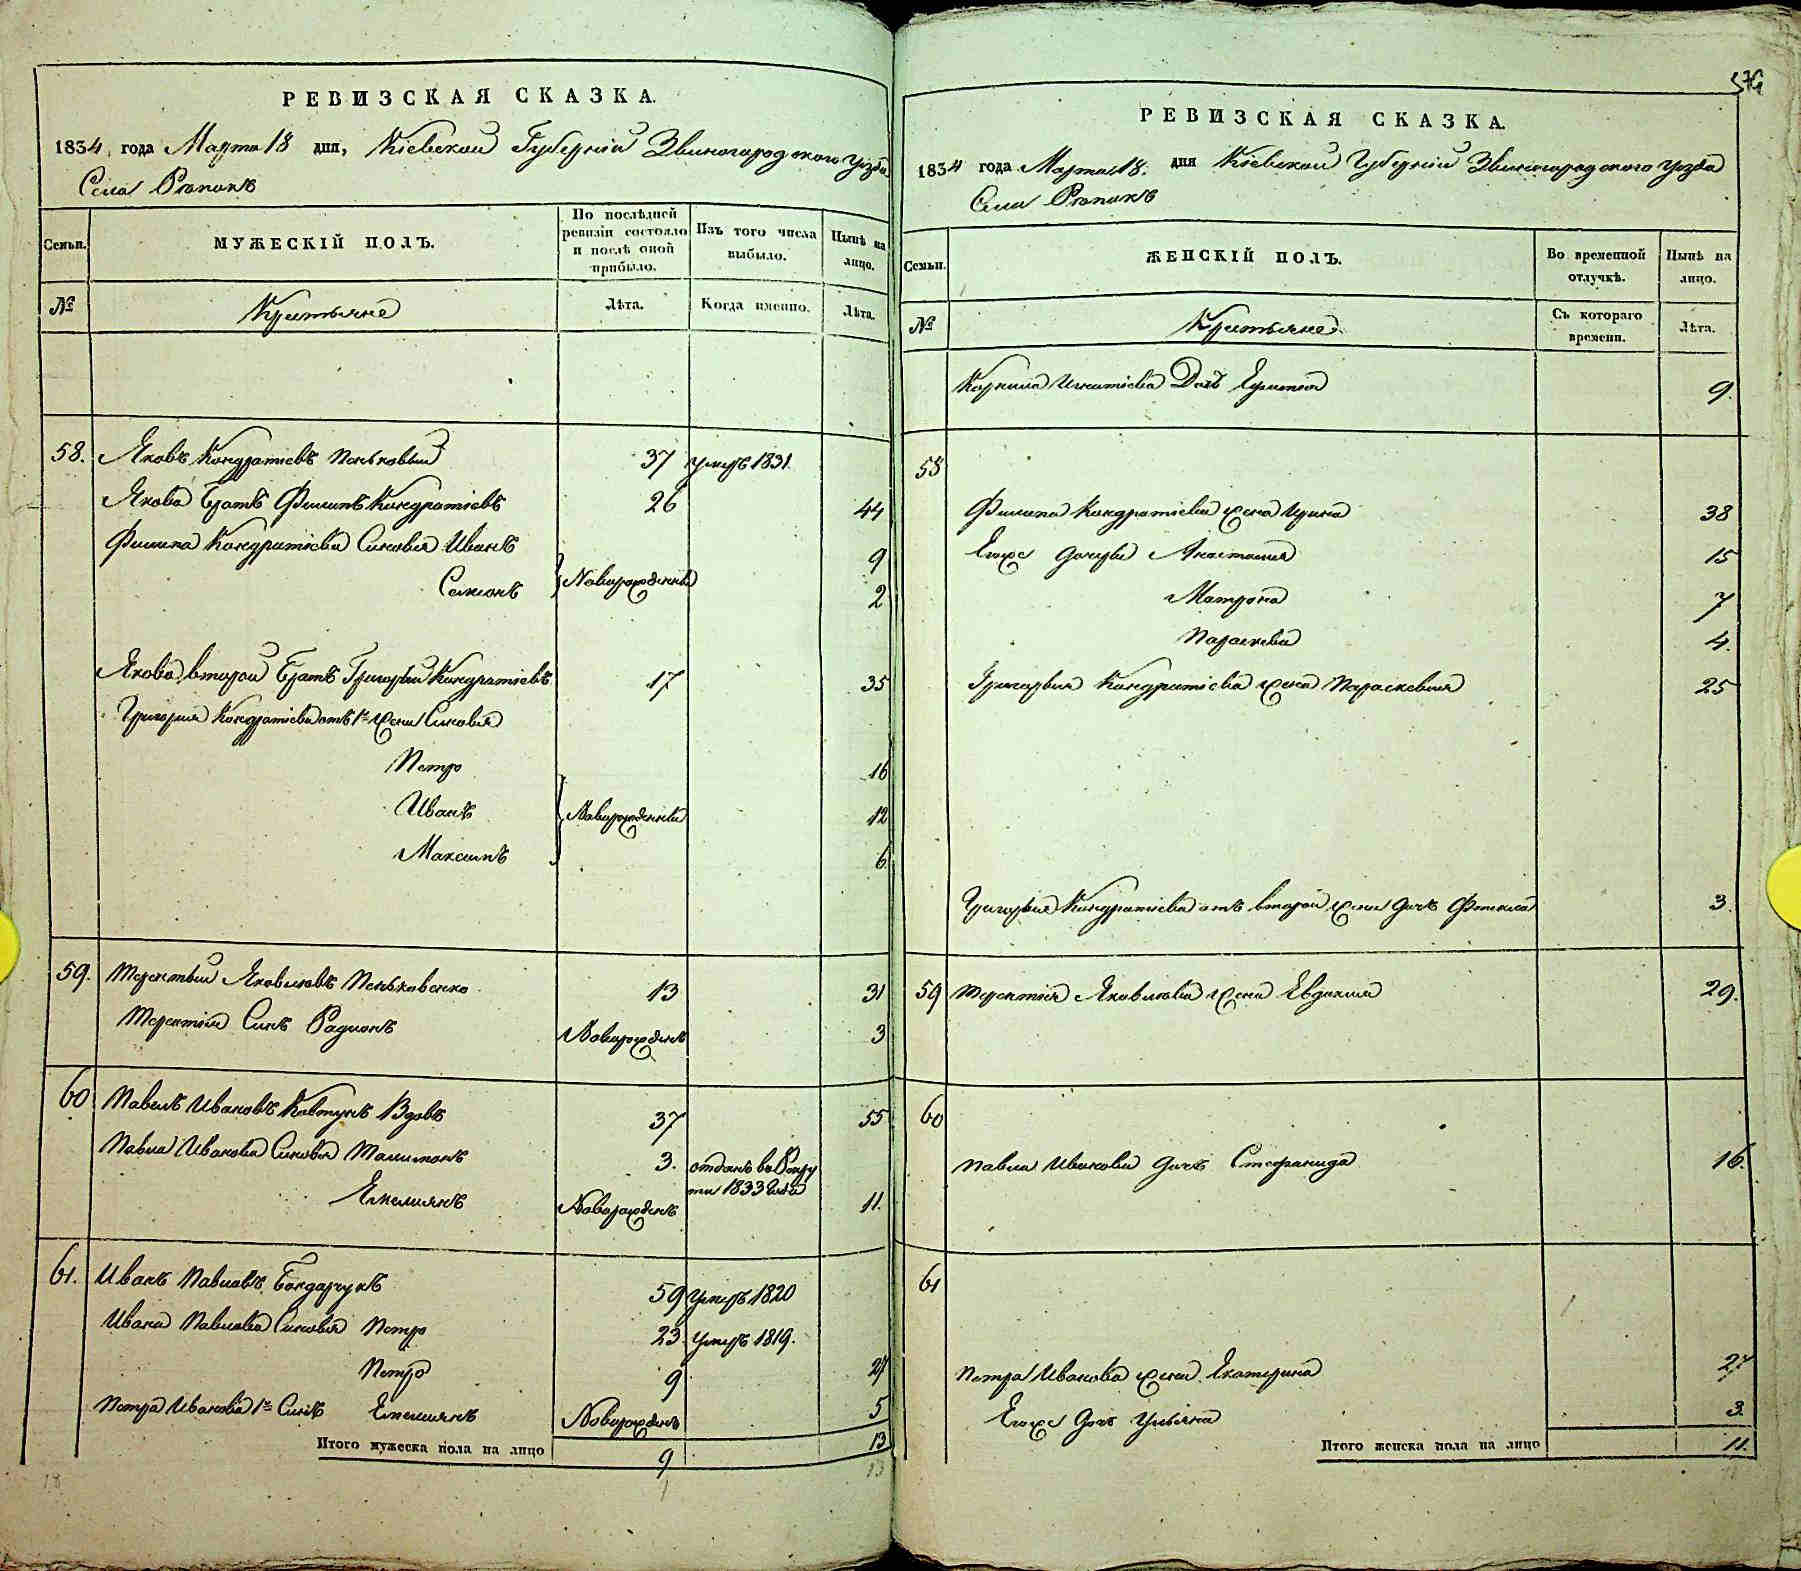 РЕВИЗСКАЯ СКАЗКА.
1834 года Марта 18 дня, Кіевской Губерніи Звиногородского Уезда
Села Репокъ
Семьи.
МУЖЕСКІЙ ПОЛЪ.
По послѣдней ревизіи состояло и послѣ оной прибыло.
Изъ того числа выбыло.
Нынѣ на лицо.
№
Крестьяне
Лѣта.
Когда именно.
Лѣта.
58. Яковъ Кондратіевъ Поньковый 37 умеръ 1831.
Якова Братъ Филипъ Кондратіевъ 26 44
Филипа Кондратіева Синовья Иванъ 9
Семіонъ Новорожденны 2
Якова второй Братъ Григорый Кондратіевъ 17 35
Григория Кондратіева отъ 1й жены Синовья
Петро 16
Иванъ Новорожденны 12
Максимъ 6
59. Терентый Яковлевъ Поньковенко 13 31
Терентія Синъ Радионъ Новорожденъ 3
60 Павелъ Ивановъ Ковтунъ Вдовъ 37 55
Павла Иванова Синовья Талимонъ 3. отданъ въ Рекру
ты 1833 года
Емелиянъ Новорожденъ 11.
61. Иванъ Павловъ Бондарчукъ 59 умеръ 1820
Ивана Павлова Синовья Петро 23 умеръ 1819.
Петро 9 27
Петра Иванова 1й Синъ Емелиянъ Новорожденъ 5
Итого мужеска пола на лицо 9 13
РЕВИЗСКАЯ СКАЗКА.
1834 года Марта 18. дня Кіевской Губерніи Звиногородского Уезда
Села Репокъ
Семьи.
ЖЕНСКІЙ ПОЛЪ.
Во временной отлучкѣ.
Нынѣ на лицо.
№
Крестьяне
Съ котораго времени.
Лѣта.
Корнила Игнатіева Дочь 9.
58
Филипа Кондратіева жена Ирина 38
Егоже дочери Анастасия 15
Матрона 7
Параскева 4.
Григорыя Кондратіева жена Параскевия 25
Григорыя Кондратіева отъ второй жены дочь Фекла 3.
59 Терентія Яковлева жена Евдокия 29.
60
Павла Иванова дочь Стефанида 16.
61
Петра Иванова жена Екатерина 27
Егоже дочь Ульяна 3
Итого женска пола на лицо 11.